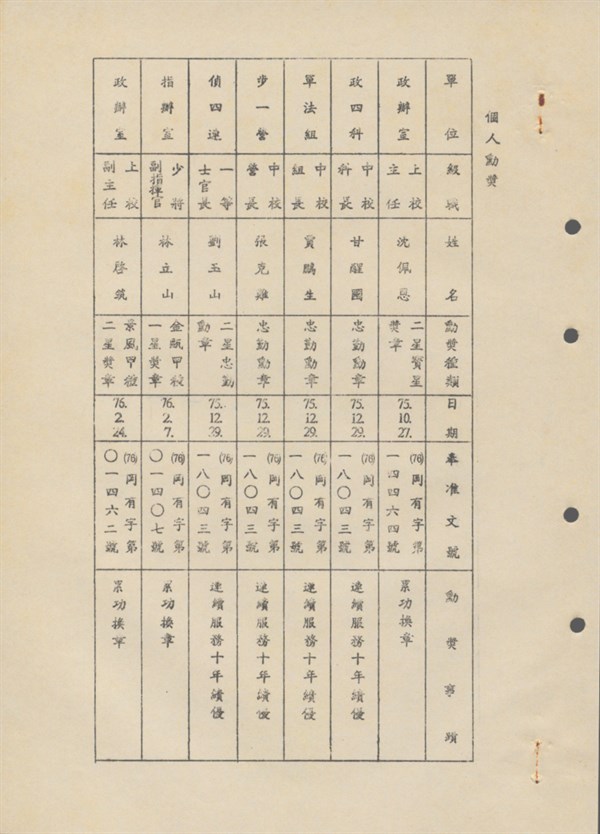 個人勳獎
單位 級職 姓名 勳獎種類 日期 奉准文號 勳獎事蹟
政辦室 上校 主任 沈佩恩 二星寶星 獎章 75. 10. 27. (76)岡有字第 一四四六四號 累功換章
政四科 中校 科長 甘醒國 忠勤勳章 75. 12. 29. (76)岡有字第 一八〇四三號 連續服務十年績優
軍法組 中校 組長 賈鵬生 忠勤勳章 75. 12. 29. (76)岡有字第 一八〇四三號 連續服務十年績優
步一營 中校 營長 張克難 忠勤勳章 75. 12. 29. (76)岡有字第 一八〇四三號 連續服務十年績優
偵四連 一等 士官長 劉玉山 二星忠勤 勳章 75. 12. 29. (76)岡有字第 一八〇四三號 連續服務十年績優
指辦室 少將 副指揮官 林立山 金甌甲種 一星獎章 76. 2. 7. (76)岡有字第 〇一四〇七號 累功換章
政辦室 上校 副主任 林啓筑 景風甲種 二星獎章 76. 2. 24. (76)岡有字第 〇一四六二號 累功換章